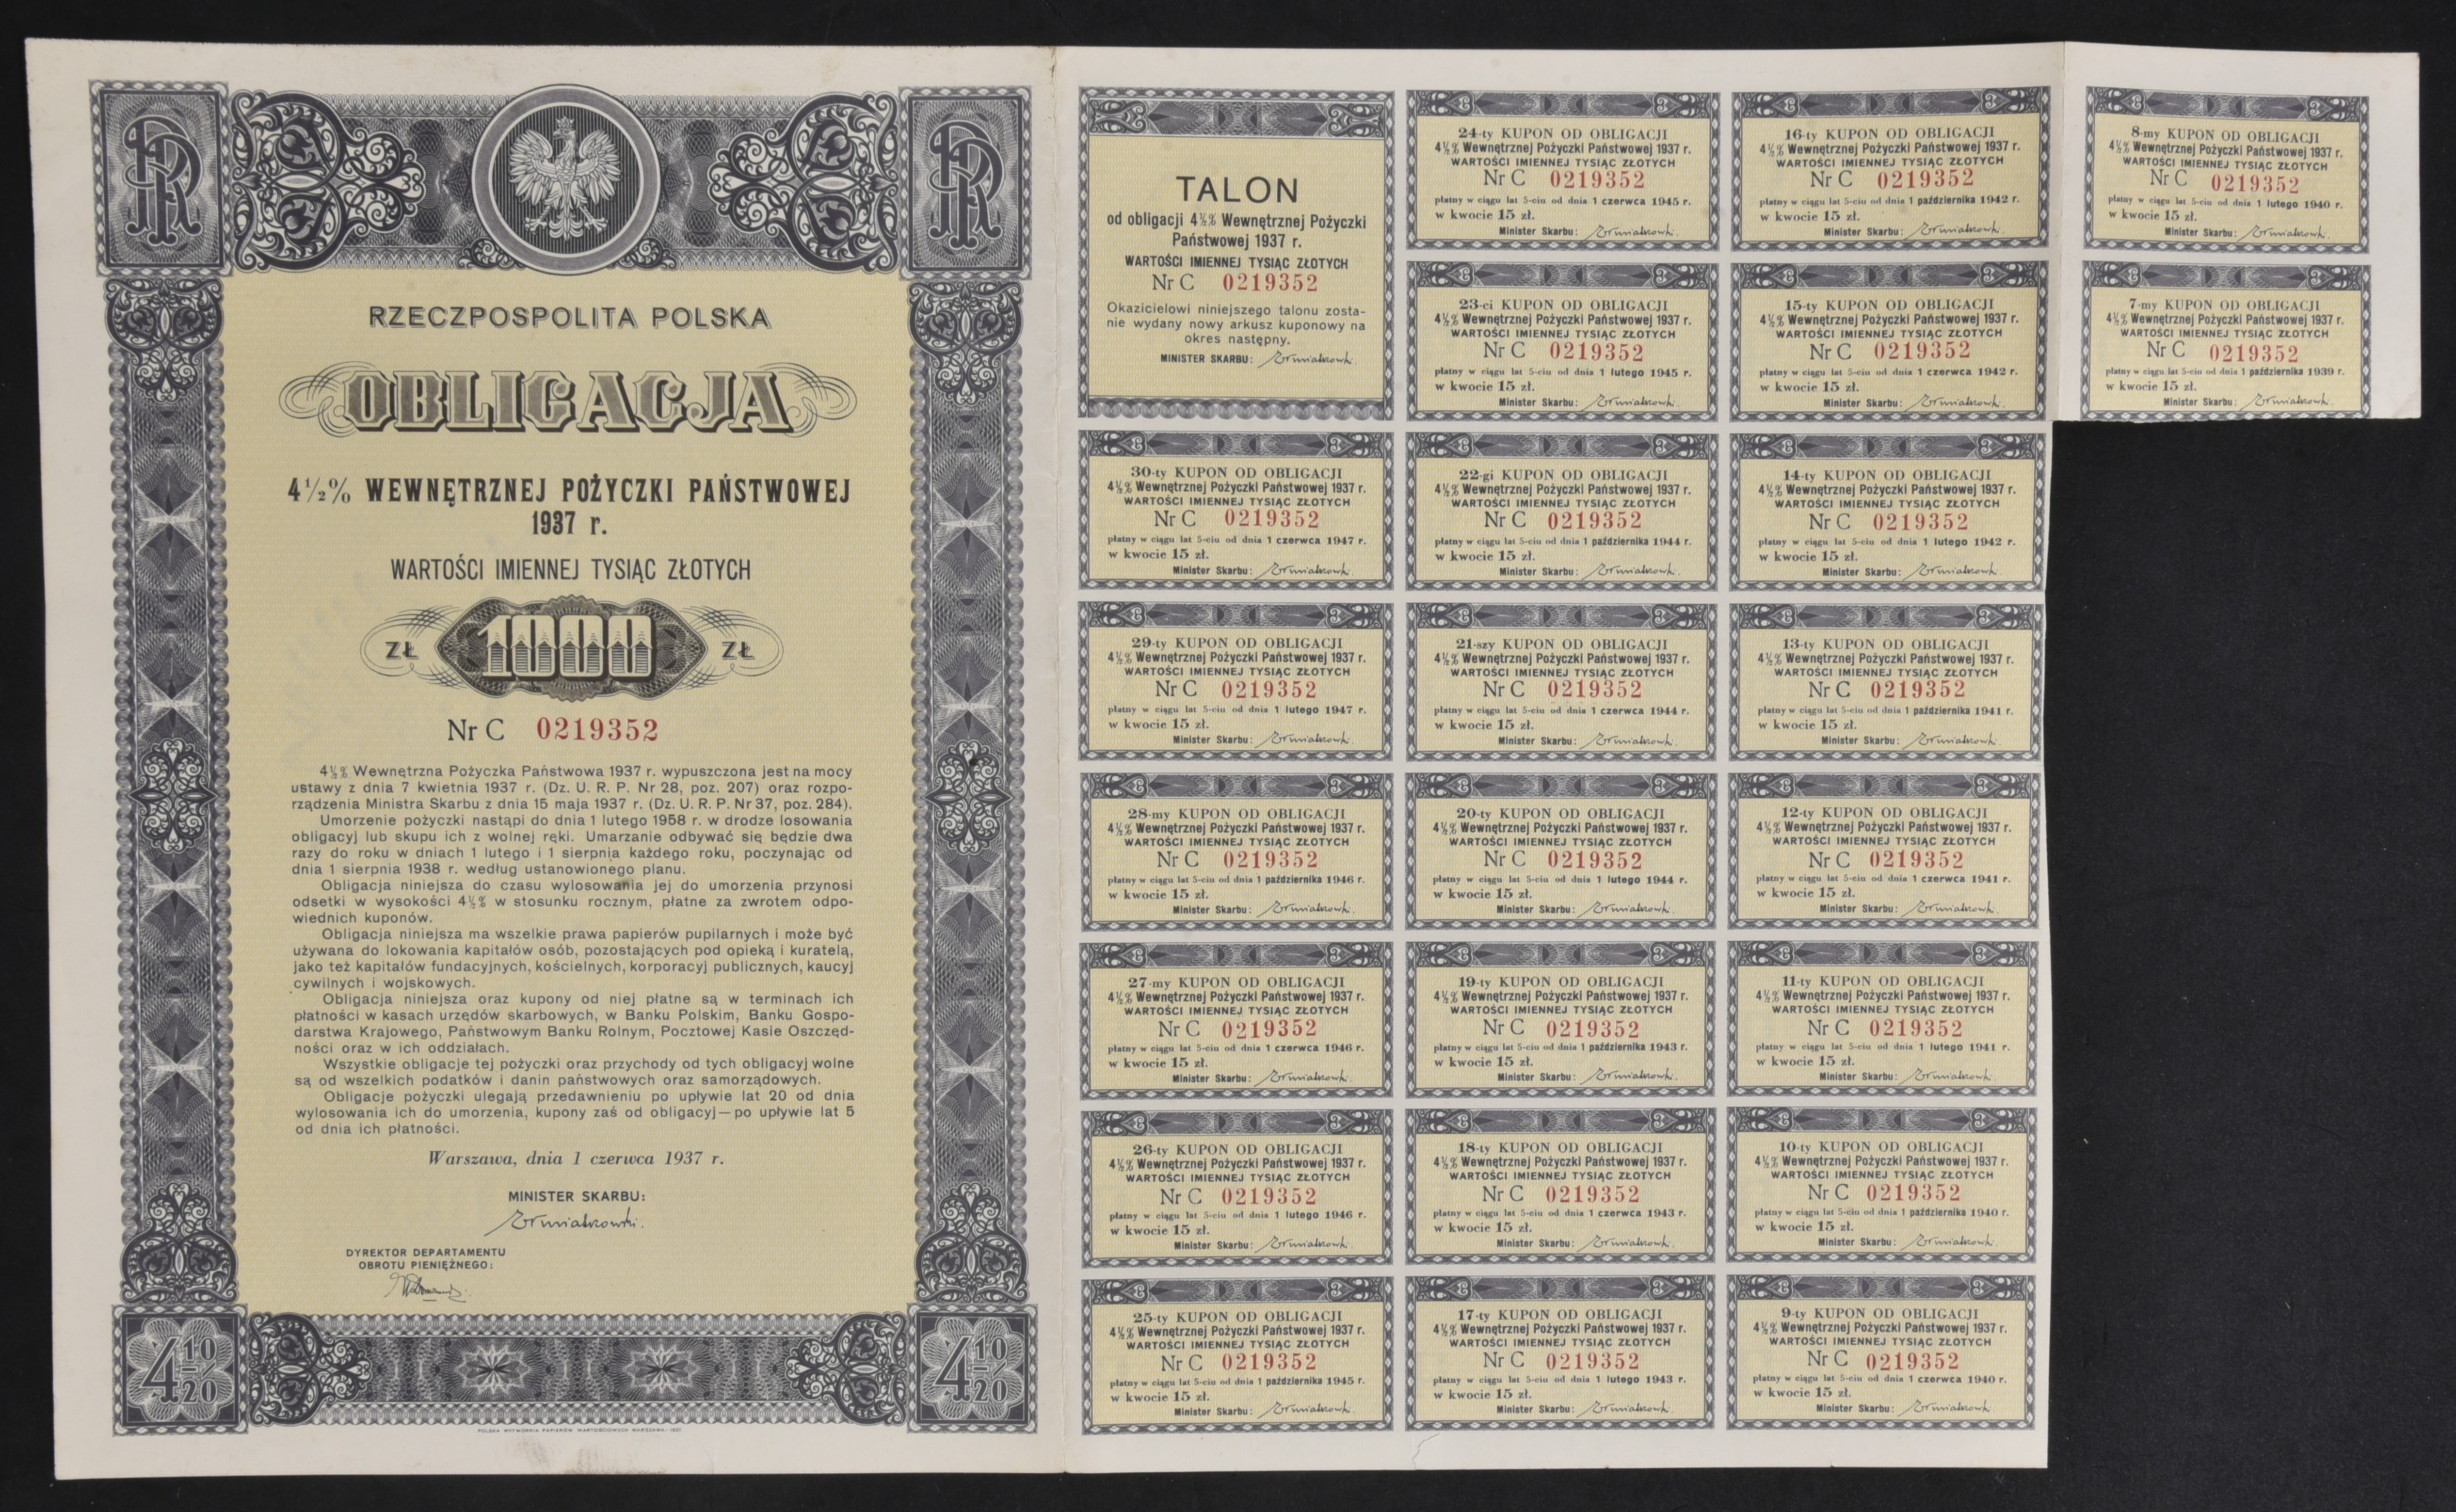 RP
RP
RZECZPOSPOLITA POLSKA
OBLIGACJA
4½% WEWNĘTRZNEJ POŻYCZKI PAŃSTWOWEJ
1937 r.
WARTOŚCI IMIENNEJ TYSIĄC ZŁOTYCH
ZŁ 1000 ZŁ
Nr C 0219352
4½% Wewnętrzna Pożyczka Państwowa 1937 r. wypuszczona jest na mocy
ustawy z dnia 7 kwietnia 1937 r. (Dz. U. R. P. Nr 28, poz. 207) oraz rozpo-
rządzenia Ministra Skarbu z dnia 15 maja 1937 r. (Dz. U. R. P. Nr 37, poz. 284).
Umorzenie pożyczki nastąpi do dnia 1 lutego 1958 r. w drodze losowania
obligacyj lub skupu ich z wolnej ręki. Umarzanie odbywać się będzie dwa
razy do roku w dniach 1 lutego i 1 sierpnia każdego roku, poczynając od
dnia 1 sierpnia 1938 r. według ustanowionego planu.
Obligacja niniejsza do czasu wylosowania jej do umorzenia przynosi
odsetki w wysokości 4½% w stosunku rocznym, płatne za zwrotem odpo-
wiednich kuponów.
Obligacja niniejsza ma wszelkie prawa papierów pupilarnych i może być
używana do lokowania kapitałów osób, pozostających pod opieką i kuratelą,
jako też kapitałów fundacyjnych, kościelnych, korporacyj publicznych, kaucyj
cywilnych i wojskowych.
Obligacja niniejsza oraz kupony od niej płatne są w terminach ich
płatności w kasach urzędów skarbowych, w Banku Polskim, Banku Gospo-
darstwa Krajowego, Państwowym Banku Rolnym, Pocztowej Kasie Oszczęd-
ności oraz w ich oddziałach.
Wszystkie obligacje tej pożyczki oraz przychody od tych obligacyj wolne
są od wszelkich podatków i danin państwowych oraz samorządowych.
Obligacje pożyczki ulegają przedawnieniu po upływie lat 20 od dnia
wylosowania ich do umorzenia, kupony zaś od obligacyj—po upływie lat 5
od dnia ich płatności.
Warszawa, dnia 1 czerwca 1937 r.
MINISTER SKARBU:
DYREKTOR DEPARTAMENTU
OBROTU PIENIĘŻNEGO:
4 10/20
4 10/20
POLSKA WYTWÓRNIA PAPIERÓW WARTOŚCIOWYCH WARSZAWA-1937
TALON
od obligacji 4½% Wewnętrznej Pożyczki
Państwowej 1937 r.
WARTOŚCI IMIENNEJ TYSIĄC ZŁOTYCH
Nr C 0219352
Okazicielowi niniejszego talonu zosta-
nie wydany nowy arkusz kuponowy na
okres następny.
MINISTER SKARBU:
30-ty KUPON OD OBLIGACJI
4½% Wewnętrznej Pożyczki Państwowej 1937 r.
WARTOŚCI IMIENNEJ TYSIĄC ZŁOTYCH
Nr C 0219352
płatny w ciągu lat 5-ciu od dnia 1 czerwca 1947 r.
w kwocie 15 zł.
Minister Skarbu:
29-ty KUPON OD OBLIGACJI
4½% Wewnętrznej Pożyczki Państwowej 1937 r.
WARTOŚCI IMIENNEJ TYSIĄC ZŁOTYCH
Nr C 0219352
płatny w ciągu lat 5-ciu od dnia 1 lutego 1947 r.
w kwocie 15 zł.
Minister Skarbu:
28-my KUPON OD OBLIGACJI
4½% Wewnętrznej Pożyczki Państwowej 1937 r.
WARTOŚCI IMIENNEJ TYSIĄC ZŁOTYCH
Nr C 0219352
płatny w ciągu lat 5-ciu od dnia 1 października 1946 r.
w kwocie 15 zł.
Minister Skarbu:
27-my KUPON OD OBLIGACJI
4½% Wewnętrznej Pożyczki Państwowej 1937 r.
WARTOŚCI IMIENNEJ TYSIĄC ZŁOTYCH
Nr C 0219352
płatny w ciągu lat 5-ciu od dnia 1 czerwca 1946 r.
w kwocie 15 zł.
Minister Skarbu:
26-ty KUPON OD OBLIGACJI
4½% Wewnętrznej Pożyczki Państwowej 1937 r.
WARTOŚCI IMIENNEJ TYSIĄC ZŁOTYCH
Nr C 0219352
płatny w ciągu lat 5-ciu od dnia 1 lutego 1946 r.
w kwocie 15 zł.
Minister Skarbu:
25-ty KUPON OD OBLIGACJI
4½% Wewnętrznej Pożyczki Państwowej 1937 r.
WARTOŚCI IMIENNEJ TYSIĄC ZŁOTYCH
Nr C 0219352
płatny w ciągu lat 5-ciu od dnia 1 października 1945 r.
w kwocie 15 zł.
Minister Skarbu:
24-ty KUPON OD OBLIGACJI
4½% Wewnętrznej Pożyczki Państwowej 1937 r.
WARTOŚCI IMIENNEJ TYSIĄC ZŁOTYCH
Nr C 0219352
płatny w ciągu lat 5-ciu od dnia 1 czerwca 1945 r.
w kwocie 15 zł.
Minister Skarbu:
23-ci KUPON OD OBLIGACJI
4½% Wewnętrznej Pożyczki Państwowej 1937 r.
WARTOŚCI IMIENNEJ TYSIĄC ZŁOTYCH
Nr C 0219352
płatny w ciągu lat 5-ciu od dnia 1 lutego 1945 r.
w kwocie 15 zł.
Minister Skarbu:
22-gi KUPON OD OBLIGACJI
4½% Wewnętrznej Pożyczki Państwowej 1937 r.
WARTOŚCI IMIENNEJ TYSIĄC ZŁOTYCH
Nr C 0219352
płatny w ciągu lat 5-ciu od dnia 1 października 1944 r.
w kwocie 15 zł.
Minister Skarbu:
21-szy KUPON OD OBLIGACJI
4½% Wewnętrznej Pożyczki Państwowej 1937 r.
WARTOŚCI IMIENNEJ TYSIĄC ZŁOTYCH
Nr C 0219352
płatny w ciągu lat 5-ciu od dnia 1 czerwca 1944 r.
w kwocie 15 zł.
Minister Skarbu:
20-ty KUPON OD OBLIGACJI
4½% Wewnętrznej Pożyczki Państwowej 1937 r.
WARTOŚCI IMIENNEJ TYSIĄC ZŁOTYCH
Nr C 0219352
płatny w ciągu lat 5-ciu od dnia 1 lutego 1944 r.
w kwocie 15 zł.
Minister Skarbu:
19-ty KUPON OD OBLIGACJI
4½% Wewnętrznej Pożyczki Państwowej 1937 r.
WARTOŚCI IMIENNEJ TYSIĄC ZŁOTYCH
Nr C 0219352
płatny w ciągu lat 5-ciu od dnia 1 października 1943 r.
w kwocie 15 zł.
Minister Skarbu:
18-ty KUPON OD OBLIGACJI
4½% Wewnętrznej Pożyczki Państwowej 1937 r.
WARTOŚCI IMIENNEJ TYSIĄC ZŁOTYCH
Nr C 0219352
płatny w ciągu lat 5-ciu od dnia 1 czerwca 1943 r.
w kwocie 15 zł.
Minister Skarbu:
17-ty KUPON OD OBLIGACJI
4½% Wewnętrznej Pożyczki Państwowej 1937 r.
WARTOŚCI IMIENNEJ TYSIĄC ZŁOTYCH
Nr C 0219352
płatny w ciągu lat 5-ciu od dnia 1 lutego 1943 r.
w kwocie 15 zł.
Minister Skarbu:
16-ty KUPON OD OBLIGACJI
4½% Wewnętrznej Pożyczki Państwowej 1937 r.
WARTOŚCI IMIENNEJ TYSIĄC ZŁOTYCH
Nr C 0219352
płatny w ciągu lat 5-ciu od dnia 1 października 1942 r.
w kwocie 15 zł.
Minister Skarbu:
15-ty KUPON OD OBLIGACJI
4½% Wewnętrznej Pożyczki Państwowej 1937 r.
WARTOŚCI IMIENNEJ TYSIĄC ZŁOTYCH
Nr C 0219352
płatny w ciągu lat 5-ciu od dnia 1 czerwca 1942 r.
w kwocie 15 zł.
Minister Skarbu:
14-ty KUPON OD OBLIGACJI
4½% Wewnętrznej Pożyczki Państwowej 1937 r.
WARTOŚCI IMIENNEJ TYSIĄC ZŁOTYCH
Nr C 0219352
płatny w ciągu lat 5-ciu od dnia 1 lutego 1942 r.
w kwocie 15 zł.
Minister Skarbu:
13-ty KUPON OD OBLIGACJI
4½% Wewnętrznej Pożyczki Państwowej 1937 r.
WARTOŚCI IMIENNEJ TYSIĄC ZŁOTYCH
Nr C 0219352
płatny w ciągu lat 5-ciu od dnia 1 października 1941 r.
w kwocie 15 zł.
Minister Skarbu:
12-ty KUPON OD OBLIGACJI
4½% Wewnętrznej Pożyczki Państwowej 1937 r.
WARTOŚCI IMIENNEJ TYSIĄC ZŁOTYCH
Nr C 0219352
płatny w ciągu lat 5-ciu od dnia 1 czerwca 1941 r.
w kwocie 15 zł.
Minister Skarbu:
11-ty KUPON OD OBLIGACJI
4½% Wewnętrznej Pożyczki Państwowej 1937 r.
WARTOŚCI IMIENNEJ TYSIĄC ZŁOTYCH
Nr C 0219352
płatny w ciągu lat 5-ciu od dnia 1 lutego 1941 r.
w kwocie 15 zł.
Minister Skarbu:
10-ty KUPON OD OBLIGACJI
4½% Wewnętrznej Pożyczki Państwowej 1937 r.
WARTOŚCI IMIENNEJ TYSIĄC ZŁOTYCH
Nr C 0219352
płatny w ciągu lat 5-ciu od dnia 1 października 1940 r.
w kwocie 15 zł.
Minister Skarbu:
9-ty KUPON OD OBLIGACJI
4½% Wewnętrznej Pożyczki Państwowej 1937 r.
WARTOŚCI IMIENNEJ TYSIĄC ZŁOTYCH
Nr C 0219352
płatny w ciągu lat 5-ciu od dnia 1 czerwca 1940 r.
w kwocie 15 zł.
Minister Skarbu:
8-my KUPON OD OBLIGACJI
4½% Wewnętrznej Pożyczki Państwowej 1937 r.
WARTOŚCI IMIENNEJ TYSIĄC ZŁOTYCH
Nr C 0219352
płatny w ciągu lat 5-ciu od dnia 1 lutego 1940 r.
w kwocie 15 zł.
Minister Skarbu:
7-my KUPON OD OBLIGACJI
4½% Wewnętrznej Pożyczki Państwowej 1937 r.
WARTOŚCI IMIENNEJ TYSIĄC ZŁOTYCH
Nr C 0219352
płatny w ciągu lat 5-ciu od dnia 1 października 1939 r.
w kwocie 15 zł.
Minister Skarbu: